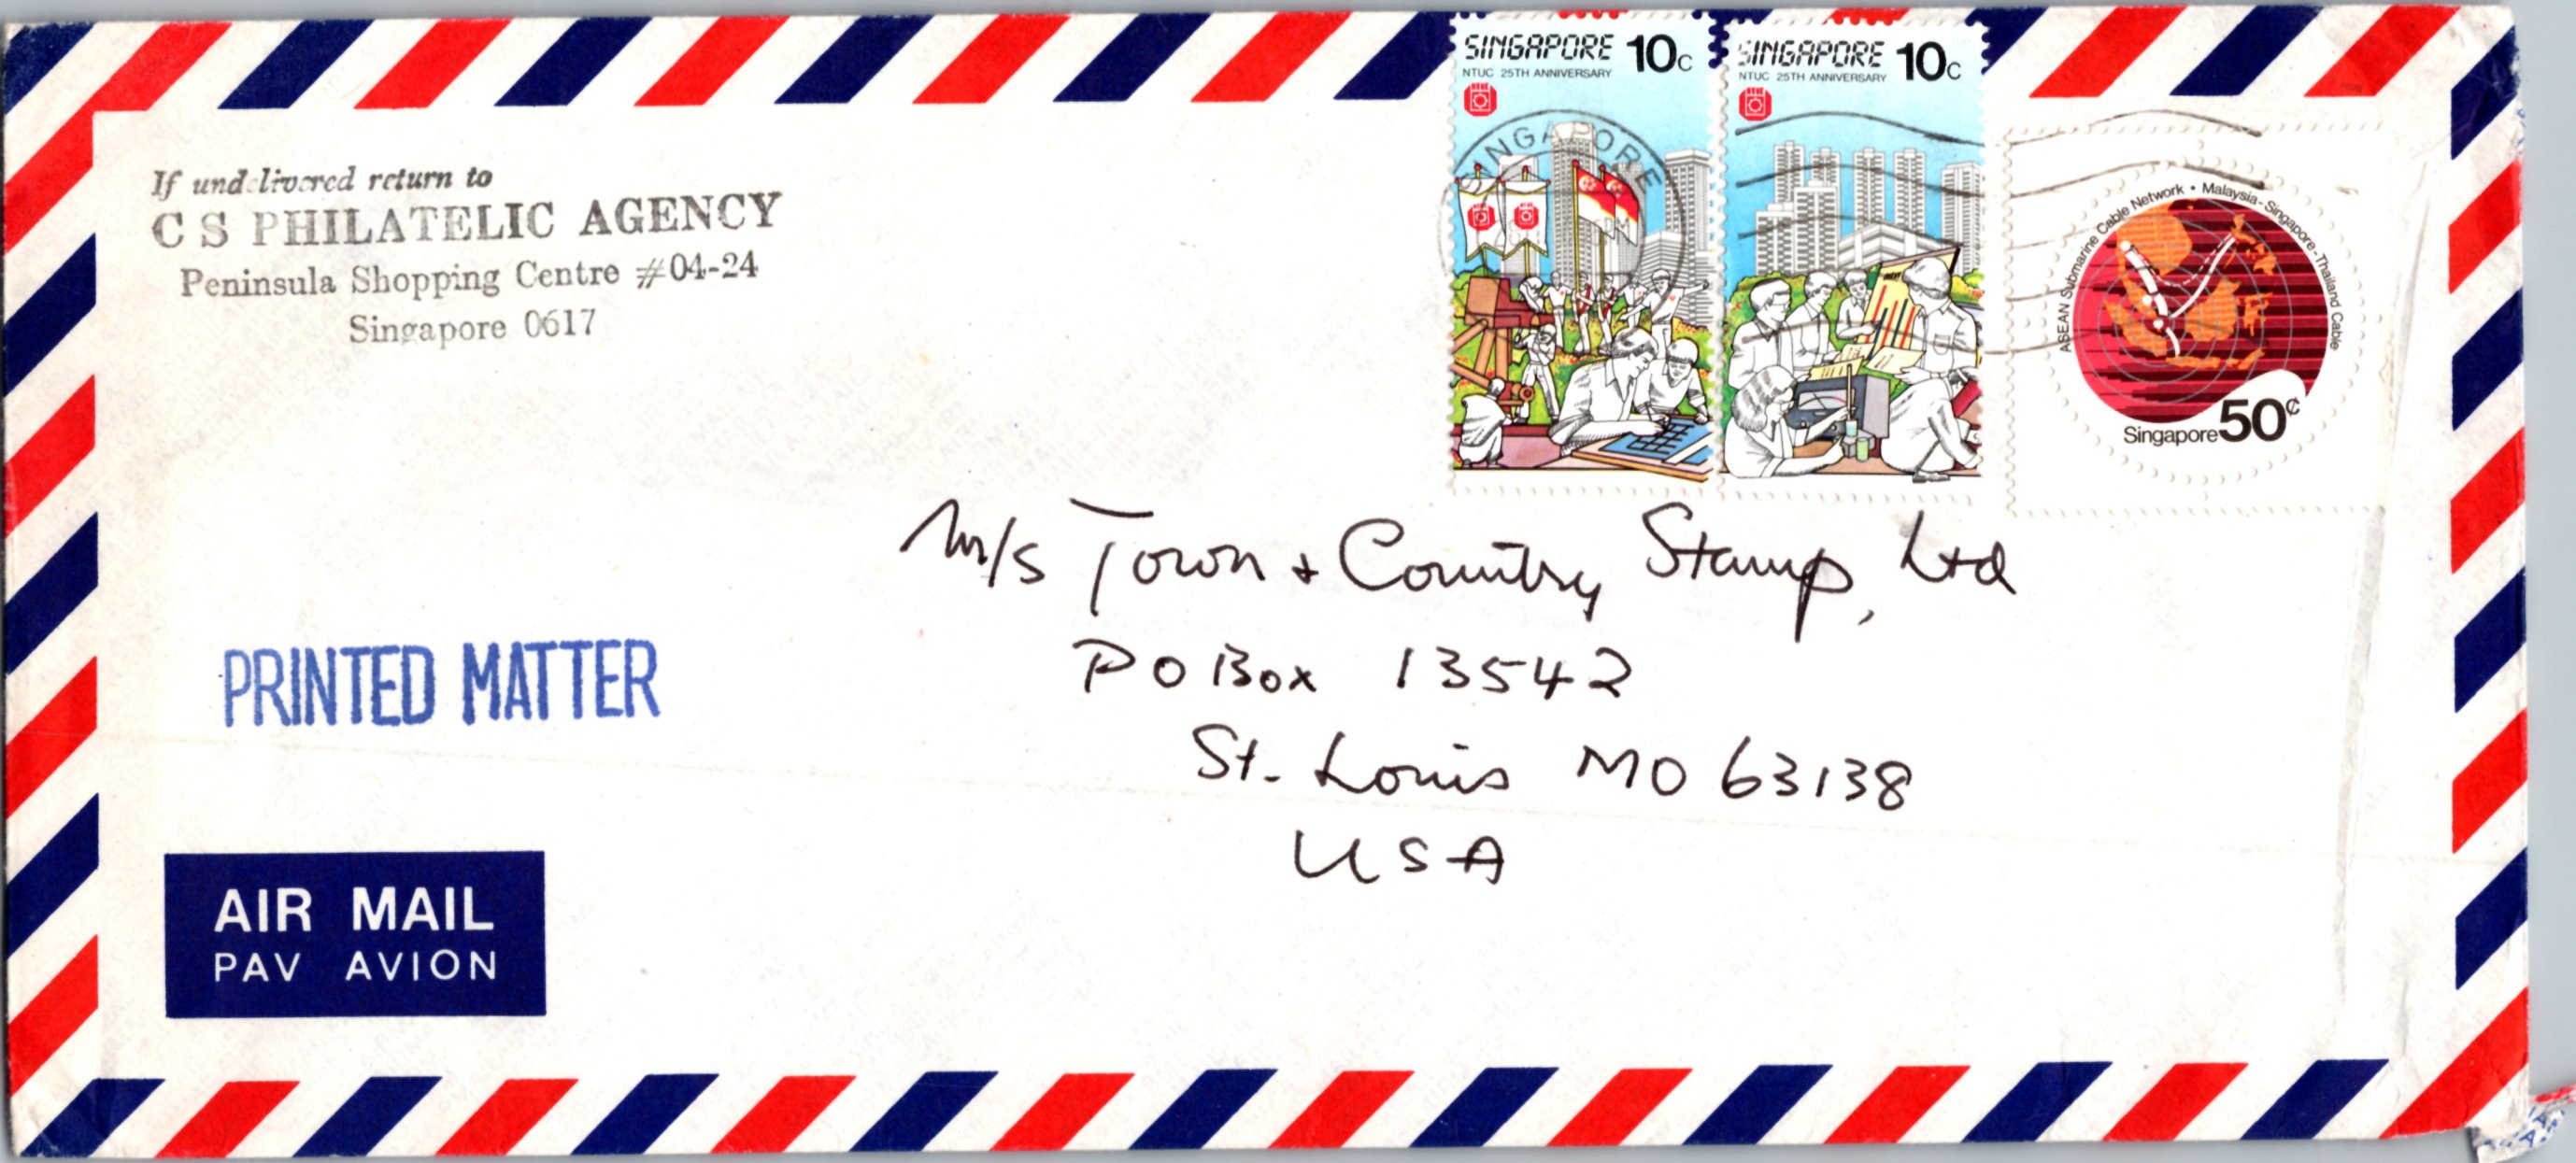 If undelivered return to
C S PHILATELIC AGENCY
Peninsula Shopping Centre #04-24
Singapore 0617
SINGAPORE 10c
NTUC 25TH ANNIVERSARY
SINGAPORE
SINGAPORE 10c
NTUC 25TH ANNIVERSARY
ASEAN Submarine Cable Network • Malaysia-Singapore-Thailand Cable
Singapore 50¢
M/s Town + Country Stamp, Ltd
P O Box 13542
St. Louis MO 63138
USA
PRINTED MATTER
AIR MAIL
PAV AVION